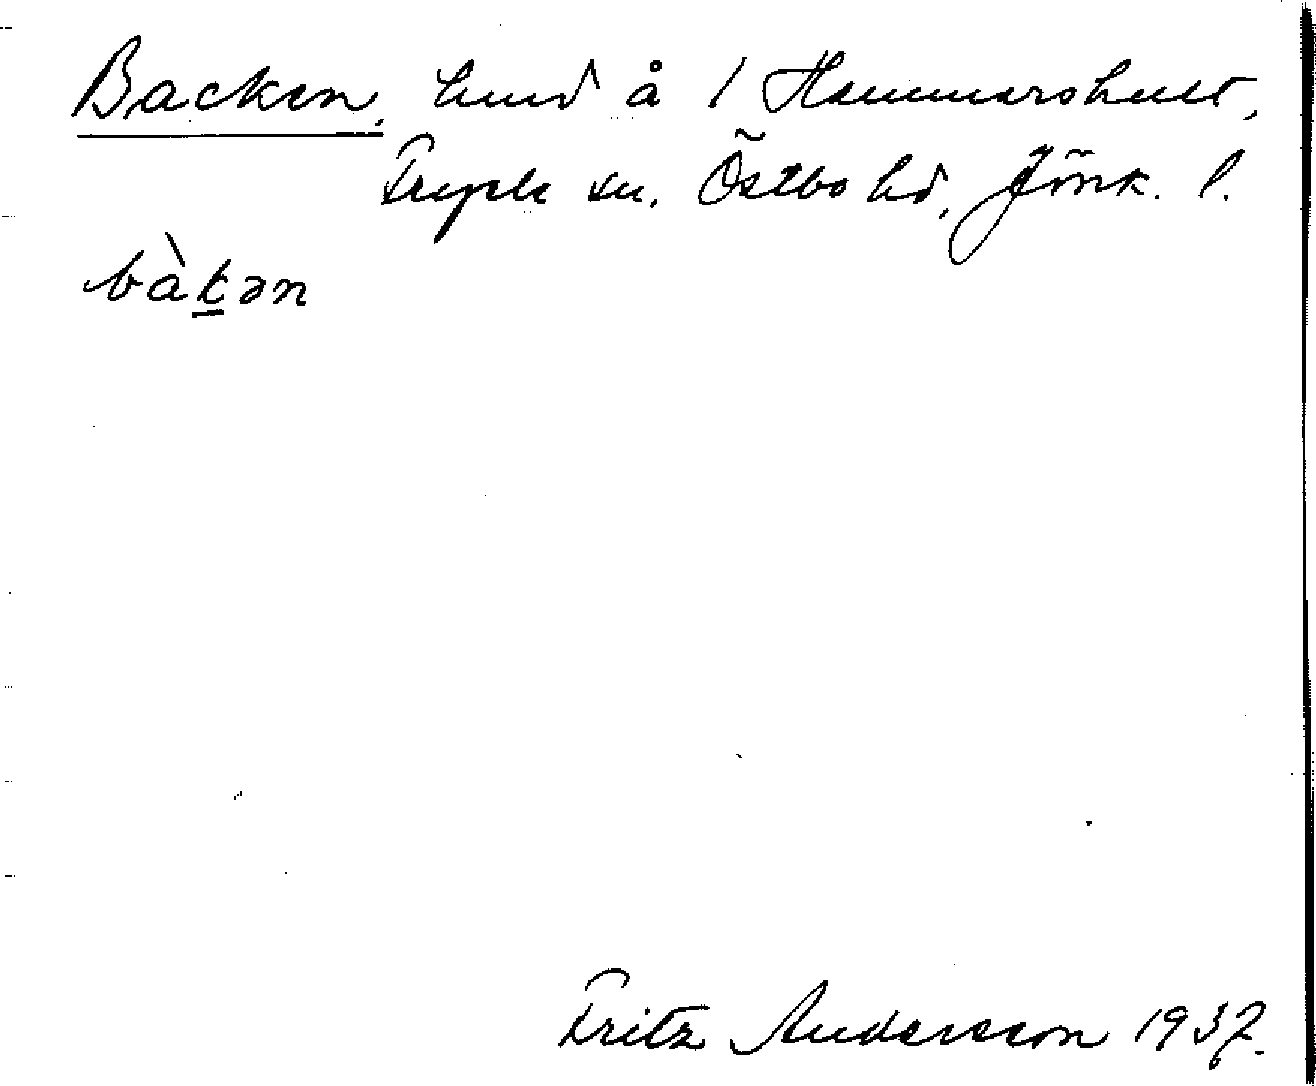 Backen, lund å 1 Hammarshult,
Fryele sn. Östbo hd, Jönk. l.
bàk̲ən
Fritz Andersson 1937.